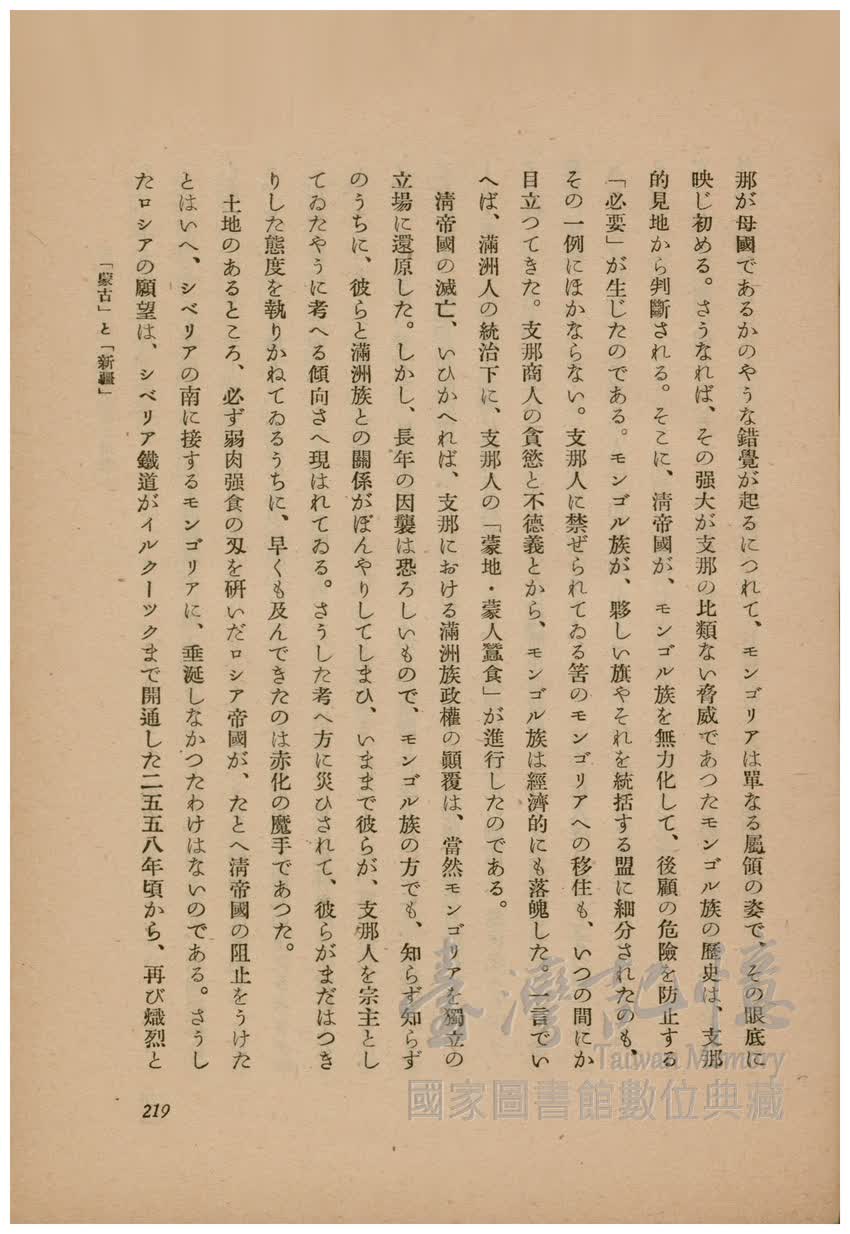 那が母國であるかのやうな錯覺が起るにつれて、モンゴリアは單なる屬領の姿で、その眼底に
映じ初める。さうなれば、その强大が支那の比類ない脅威であつたモンゴル族の歷史は、支那
的見地から判斷される。そこに、淸帝國が、モンゴル族を無力化して、後顧の危險を防止する
「必要」が生じたのである。モンゴル族が、夥しい旗やそれを統括する盟に細分されたのも、
その一例にほかならない。支那人に禁ぜられてゐる筈のモンゴリアへの移住も、いつの間にか
目立つてきた。支那商人の貪慾と不德義とから、モンゴル族は經濟的にも落魄した。一言でい
へば、滿洲人の統治下に、支那人の「蒙地・蒙人蠶食」が進行したのである。
淸帝國の滅亡、いひかへれば、支那における滿洲族政權の顚覆は、當然モンゴリアを獨立の
立場に還原した。しかし、長年の因襲は恐ろしいもので、モンゴル族の方でも、知らず知らず
のうちに、彼らと滿洲族との關係がぼんやりしてしまひ、いままで彼らが、支那人を宗主とし
てゐたやうに考へる傾向さへ現はれてゐる。さうした考へ方に災ひされて、彼らがまだはつき
りした態度を執りかねてゐるうちに、早くも及んできたのは赤化の魔手であつた。
土地のあるところ、必ず弱肉强食の刄を硏いだロシア帝國が、たとへ淸帝國の阻止をうけた
とはいへ、シベリアの南に接するモンゴリアに、垂涎しなかつたわけはないのである。さうし
たロシアの願望は、シベリア鐵道がイルクーツクまで開通した二五五八年頃から、再び熾烈と
「蒙古」と「新疆」
219
臺灣記憶
Taiwan Memory
國家圖書館數位典藏